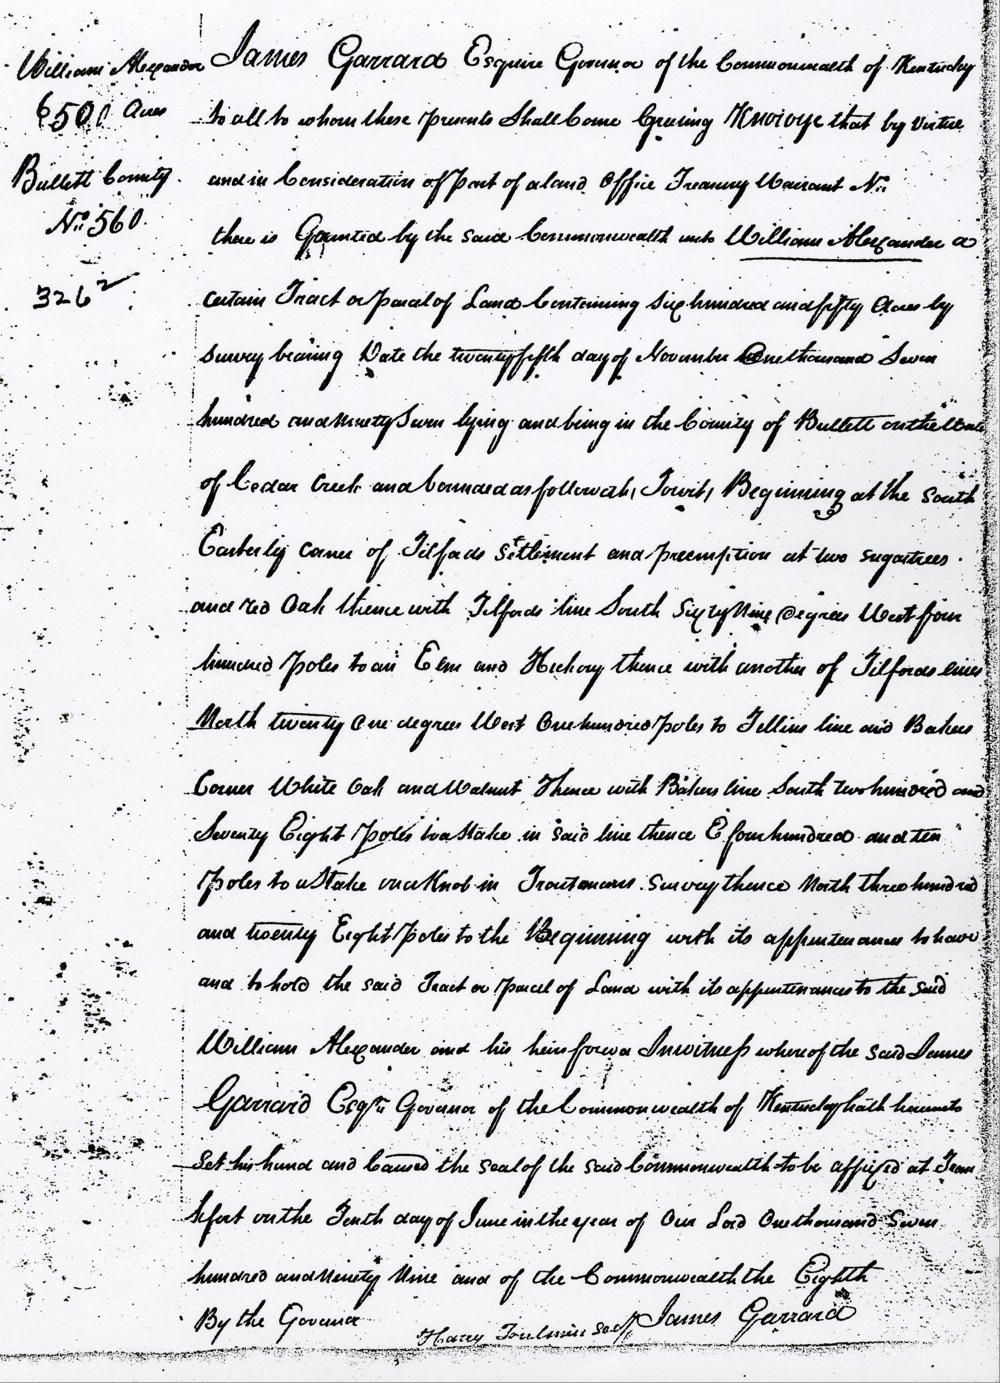 William Alexander
650 Acres
Bullett County
No. 560
326 2
James Garrard Esquire Governor of the Commonwealth of Kentucky
to all to whom these presents Shall Come Greeting Know ye that by Virtue
and in Consideration of Part of a land Office Treasury Warrant No.
there is Granted by the said Commonwealth unto William Alexander a
certain Tract or parcel of Land Containing Six hundred and fifty Acres by
survey bearing Date the twenty fifth day of November One thousand Seven
hundred and ninety Seven lying and being in the County of Bullett on the
of Cedar Creek and bounded as followeth, Towit, Beginning at the South
Easterly corner of Tilfords Settlment and preemption at two sugartrees
and red Oak thence with Tilfords line South Sixty Nine Degrees West four
hundred poles to an Elm and Hickory thence with another of Tilfords lines
North twenty One degrees West One hundred poles to line and Bakers
Corner White Oak and Walnut Thence with Bakers line South two hundred and
Seventy Eight Poles to a Stake in said line thence E four hundred and ten
Poles to a Stake on a Knob in survey thence North three hundred
and twenty Eight Poles to the Beginning with its appurtenances to have
and to hold the said Tract or Parcel of Land with its appurtenances to the said
William Alexander and his heirs forever In witness whereof the said James
Garrard Esqr. Governor of the Commonwealth of Kentucky hath hereunto
Set his hand and Caused the seal of the said Commonwealth to be affixed at Fran
kfort on the Tenth day of June in the year of Our Lord One thousand Seven
hundred and Ninety Nine and of the Commonwealth the Eighth
By the Governor
Harry Toulmin Secy James Garrard